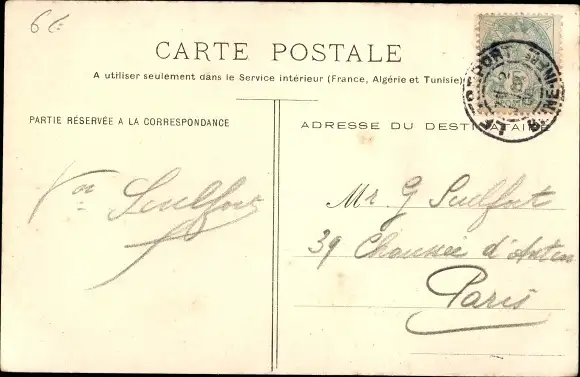 6 E
CARTE POSTALE
A utiliser seulement dans le Service intérieur (France, Algérie et Tunisie)
PARTIE RÉSERVÉE A LA CORRESPONDANCE
ADRESSE DU DESTINATAIRE
Mr. G Seulfort
39 Chaussée d'Antin
Paris